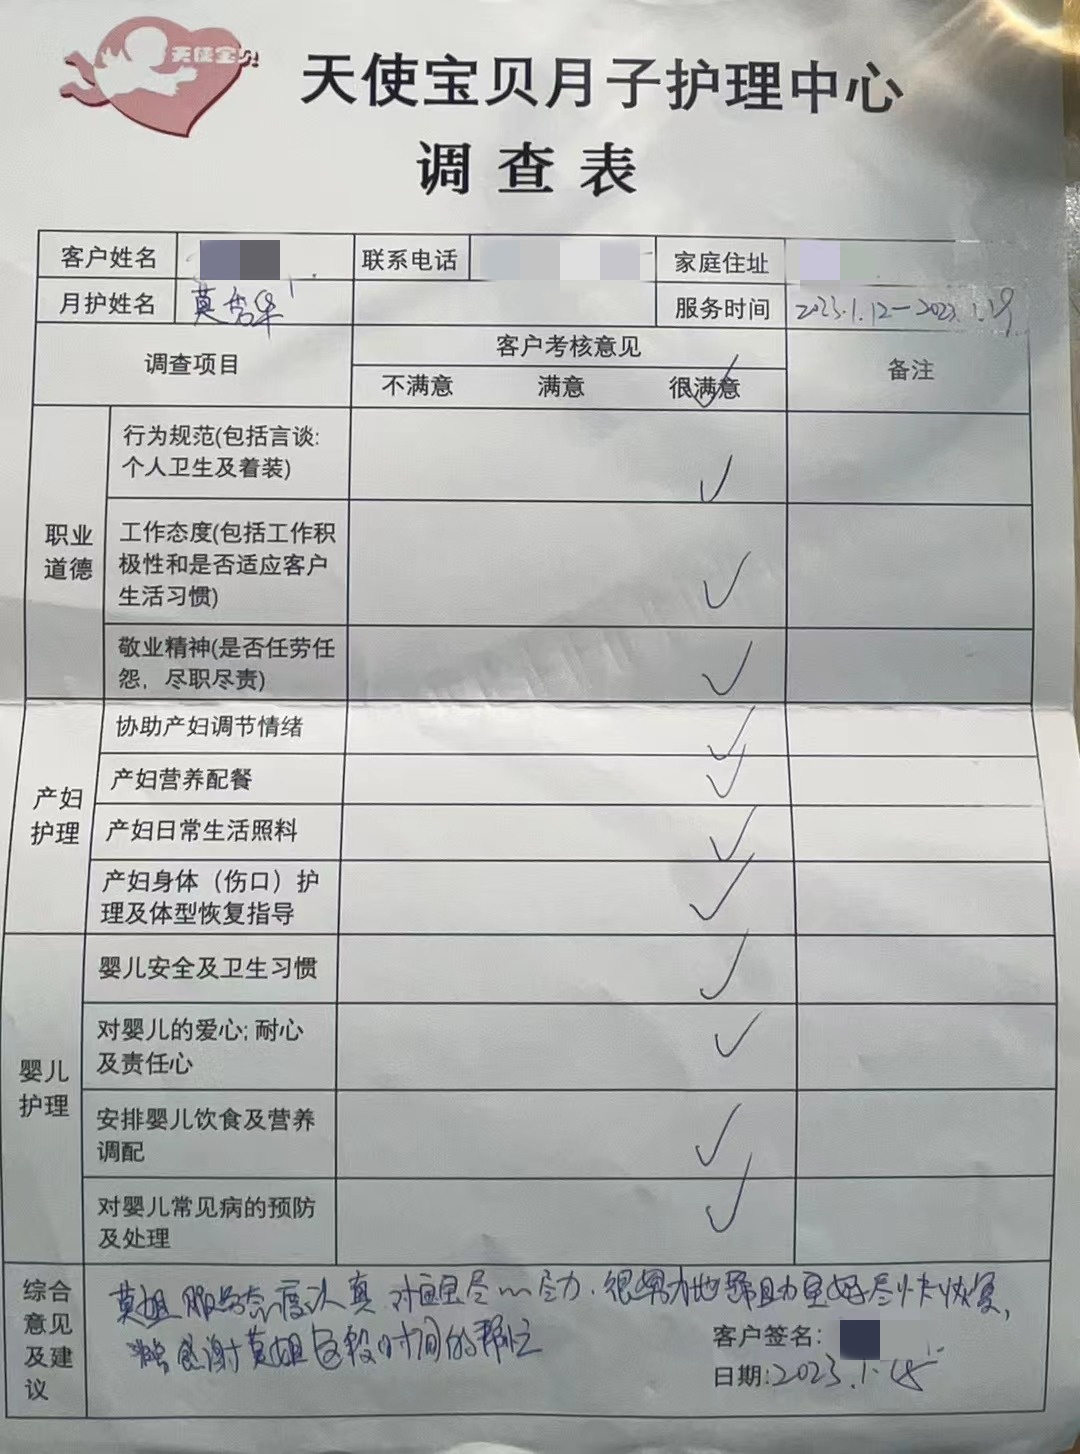 天使宝贝
天使宝贝月子护理中心
调查表
客户姓名 联系电话 家庭住址
月护姓名 莫 华 服务时间 2023.1.12—2023.1.29
调查项目 客户考核意见 备注
不满意 满意 很满意
职业
道德
行为规范(包括言谈:
个人卫生及着装)
工作态度(包括工作积
极性和是否适应客户
生活习惯)
敬业精神(是否任劳任
怨，尽职尽责)
产妇
护理
协助产妇调节情绪
产妇营养配餐
产妇日常生活照料
产妇身体（伤口）护
理及体型恢复指导
婴儿
护理
婴儿安全及卫生习惯
对婴儿的爱心; 耐心
及责任心
安排婴儿饮食及营养
调配
对婴儿常见病的预防
及处理
综合
意见
及建
议
莫姐服务态度认真，对宝宝尽心尽力，很努力地帮助 尽快恢复，
感谢莫姐这段时间的帮忙
客户签名:
日期:2023.1.